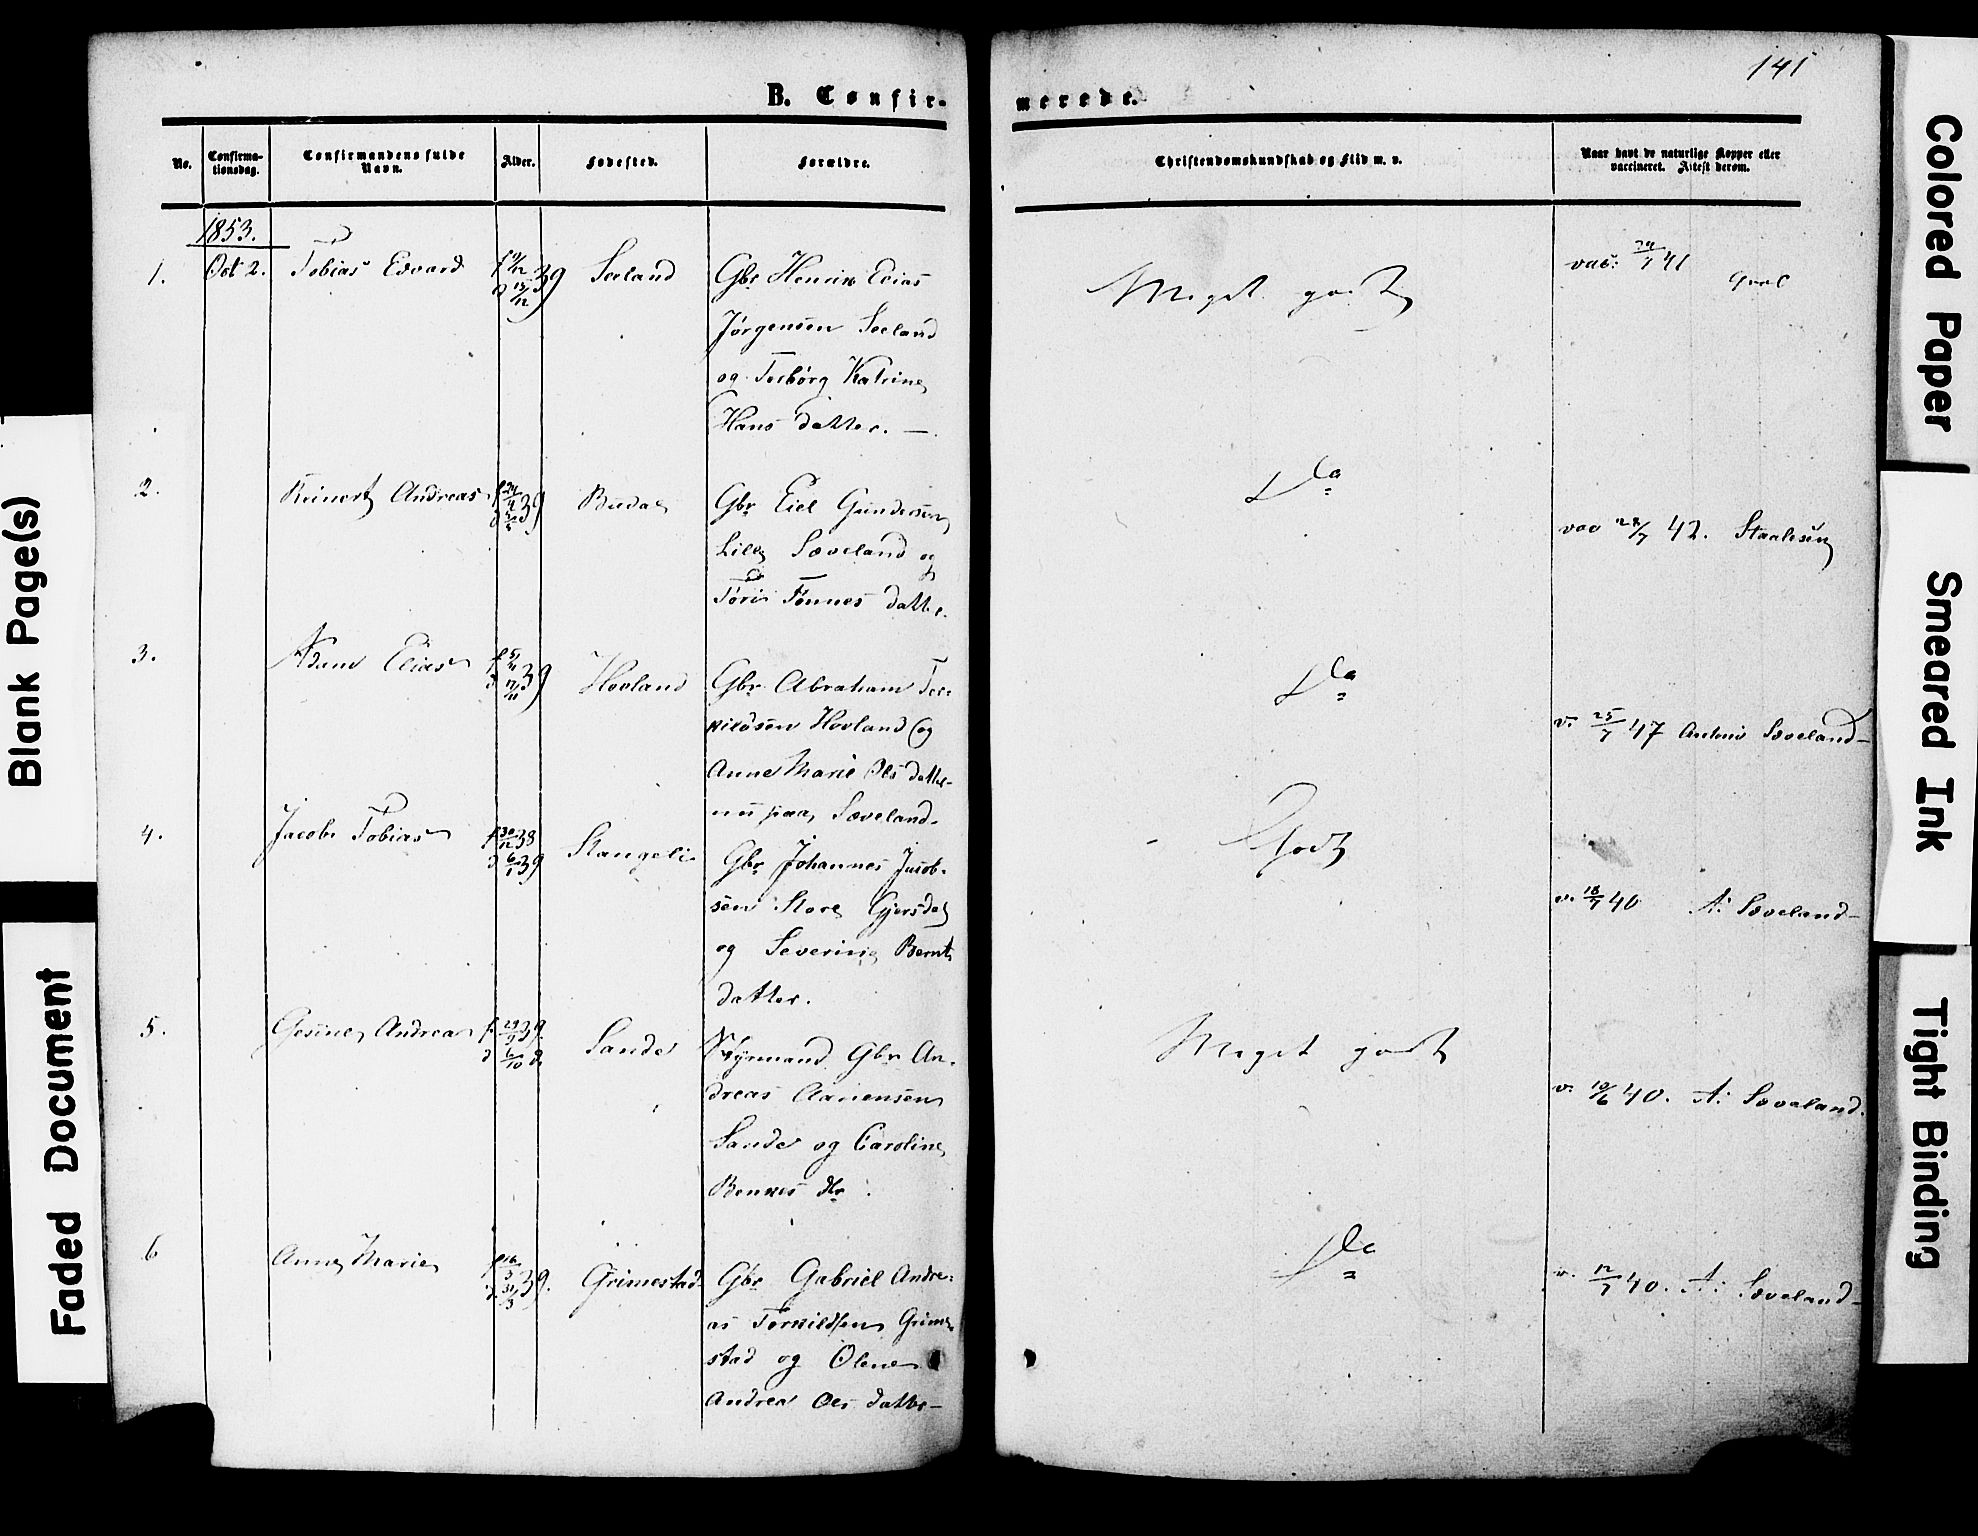 141
B. Confirmerede.
No.
Confirmationsdag.
Confirmandens fulde Navn.
Alder.
Fødested.
Forældre.
Christendomskundskab og Flid m. v.
Naar havt de naturlige Kopper eller vaccineret. Attest derom.
1853.
1. Oct 2. Tobias Edvard 39 Seeland Gbr Henrik Elias
Jørgensen Seeland
og Katrine
Hans datter. —
Meget godt
vac: 41
2. Reinert Andreas 39 Gbr Eiel Gundersen
Lille Sæveland og
Tønnes datter.
vac 42. Staalesen
3. Adam Elias 39 Hovland Gbr Abraham Ter-
kildsen Hovland og
Anne Marie Ols datter
nu paa Sæveland.
v. 25/7 47 Sæveland
4. Jacob Tobias f 30/12 38
d 6/1 39 Stangeli Gbr Johannes Jacob-
sen Store Gjersdal
og Severine Bernts
datter.
Godt
v. 18/7 40 A: Sæveland
5. Gesine Andrea f. 29/9 39.
d 6/10 Sande Gbr An-
dreas Aanensen
Sande og Caroline
dtr.
Meget godt
v. 10/6 40. A: Sæveland.
6 Anne Marie f 16/3
d. 31/3 39. Grimestad Gbr Gabriel Andre-
as Terkildsen Grime-
stad og Olene
Andrea Ols datter
v. 12/7 40. A: Sæveland
Blank Page(s)
Faded Document
Colored Paper
Smeared Ink
Tight Binding